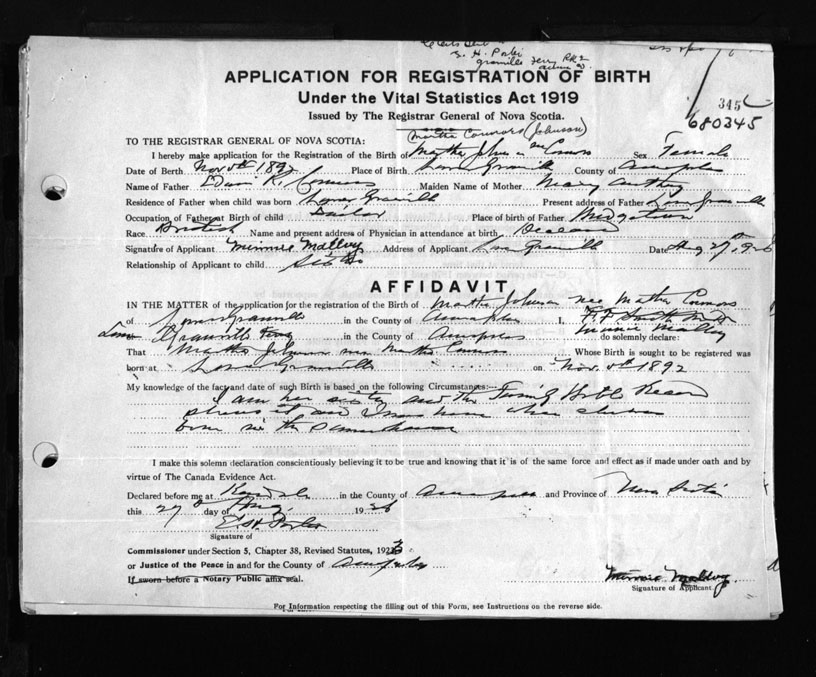 APPLICATION FOR REGISTRATION OF BIRTH
Under the Vital Statistics Act 1919
Issued by The Registrar General of Nova Scotia.
345
680345
Martha Connors (Johnson)
TO THE REGISTRAR GENERAL OF NOVA SCOTIA:
I hereby make application for the Registration of the Birth of Martha Johnson nee Connors Sex Female
Date of Berth Nov 1892 Place of Birth Lower Granville County of Annapolis
Name of Father R. Connors Maiden Name of Mother Mary
Residence of Father when child was born Lower Granville Present address of Father Lower Granville
Occupation of Father at Birth of child Sailor Place of birth of Father
Race British Name and present address of Physician in attendance at birth Deceased
Signature of Applicant Minnie Malloy Address of Applicant Lower Granville Date Aug 27th 1926
Relationship of Applicant to child Sister
AFFIDAVIT
IN THE MATTER of the application for the registration of the Birth of Martha Johnson nee Martha Connors
of Lower Granville in the County of Annapolis I,
Granville Ferry in the County of Annapolis Minnie Malloy do solemnly declare:
That Martha Johnson nee Martha Connors Whose Birth is sought to be registered was
born at Lower Granville on Nov. 1892
My knowledge of the fact and date of such Birth is based on the following Circumstances:—
I am her sister and the Family Bible Record
born in the same house
I make this solemn declaration conscientiously believing it to be true and knowing that it is of the same force and effect as if made under oath and by
virtue of The Canada Evidence Act.
Declared before me at in the County of Annapolis and Province of Nova Scotia
this 27 day of Aug. 1926
Signature of
Commissioner under Section 5, Chapter 38, Revised Statutes, 1923
or Justice of the Peace in and for the County of Annapolis
If sworn before a Notary Public affix seal.
Minnie Malloy.
Signature of Applicant.
For Information respecting the filling out of this Form, see Instructions on the reverse side.